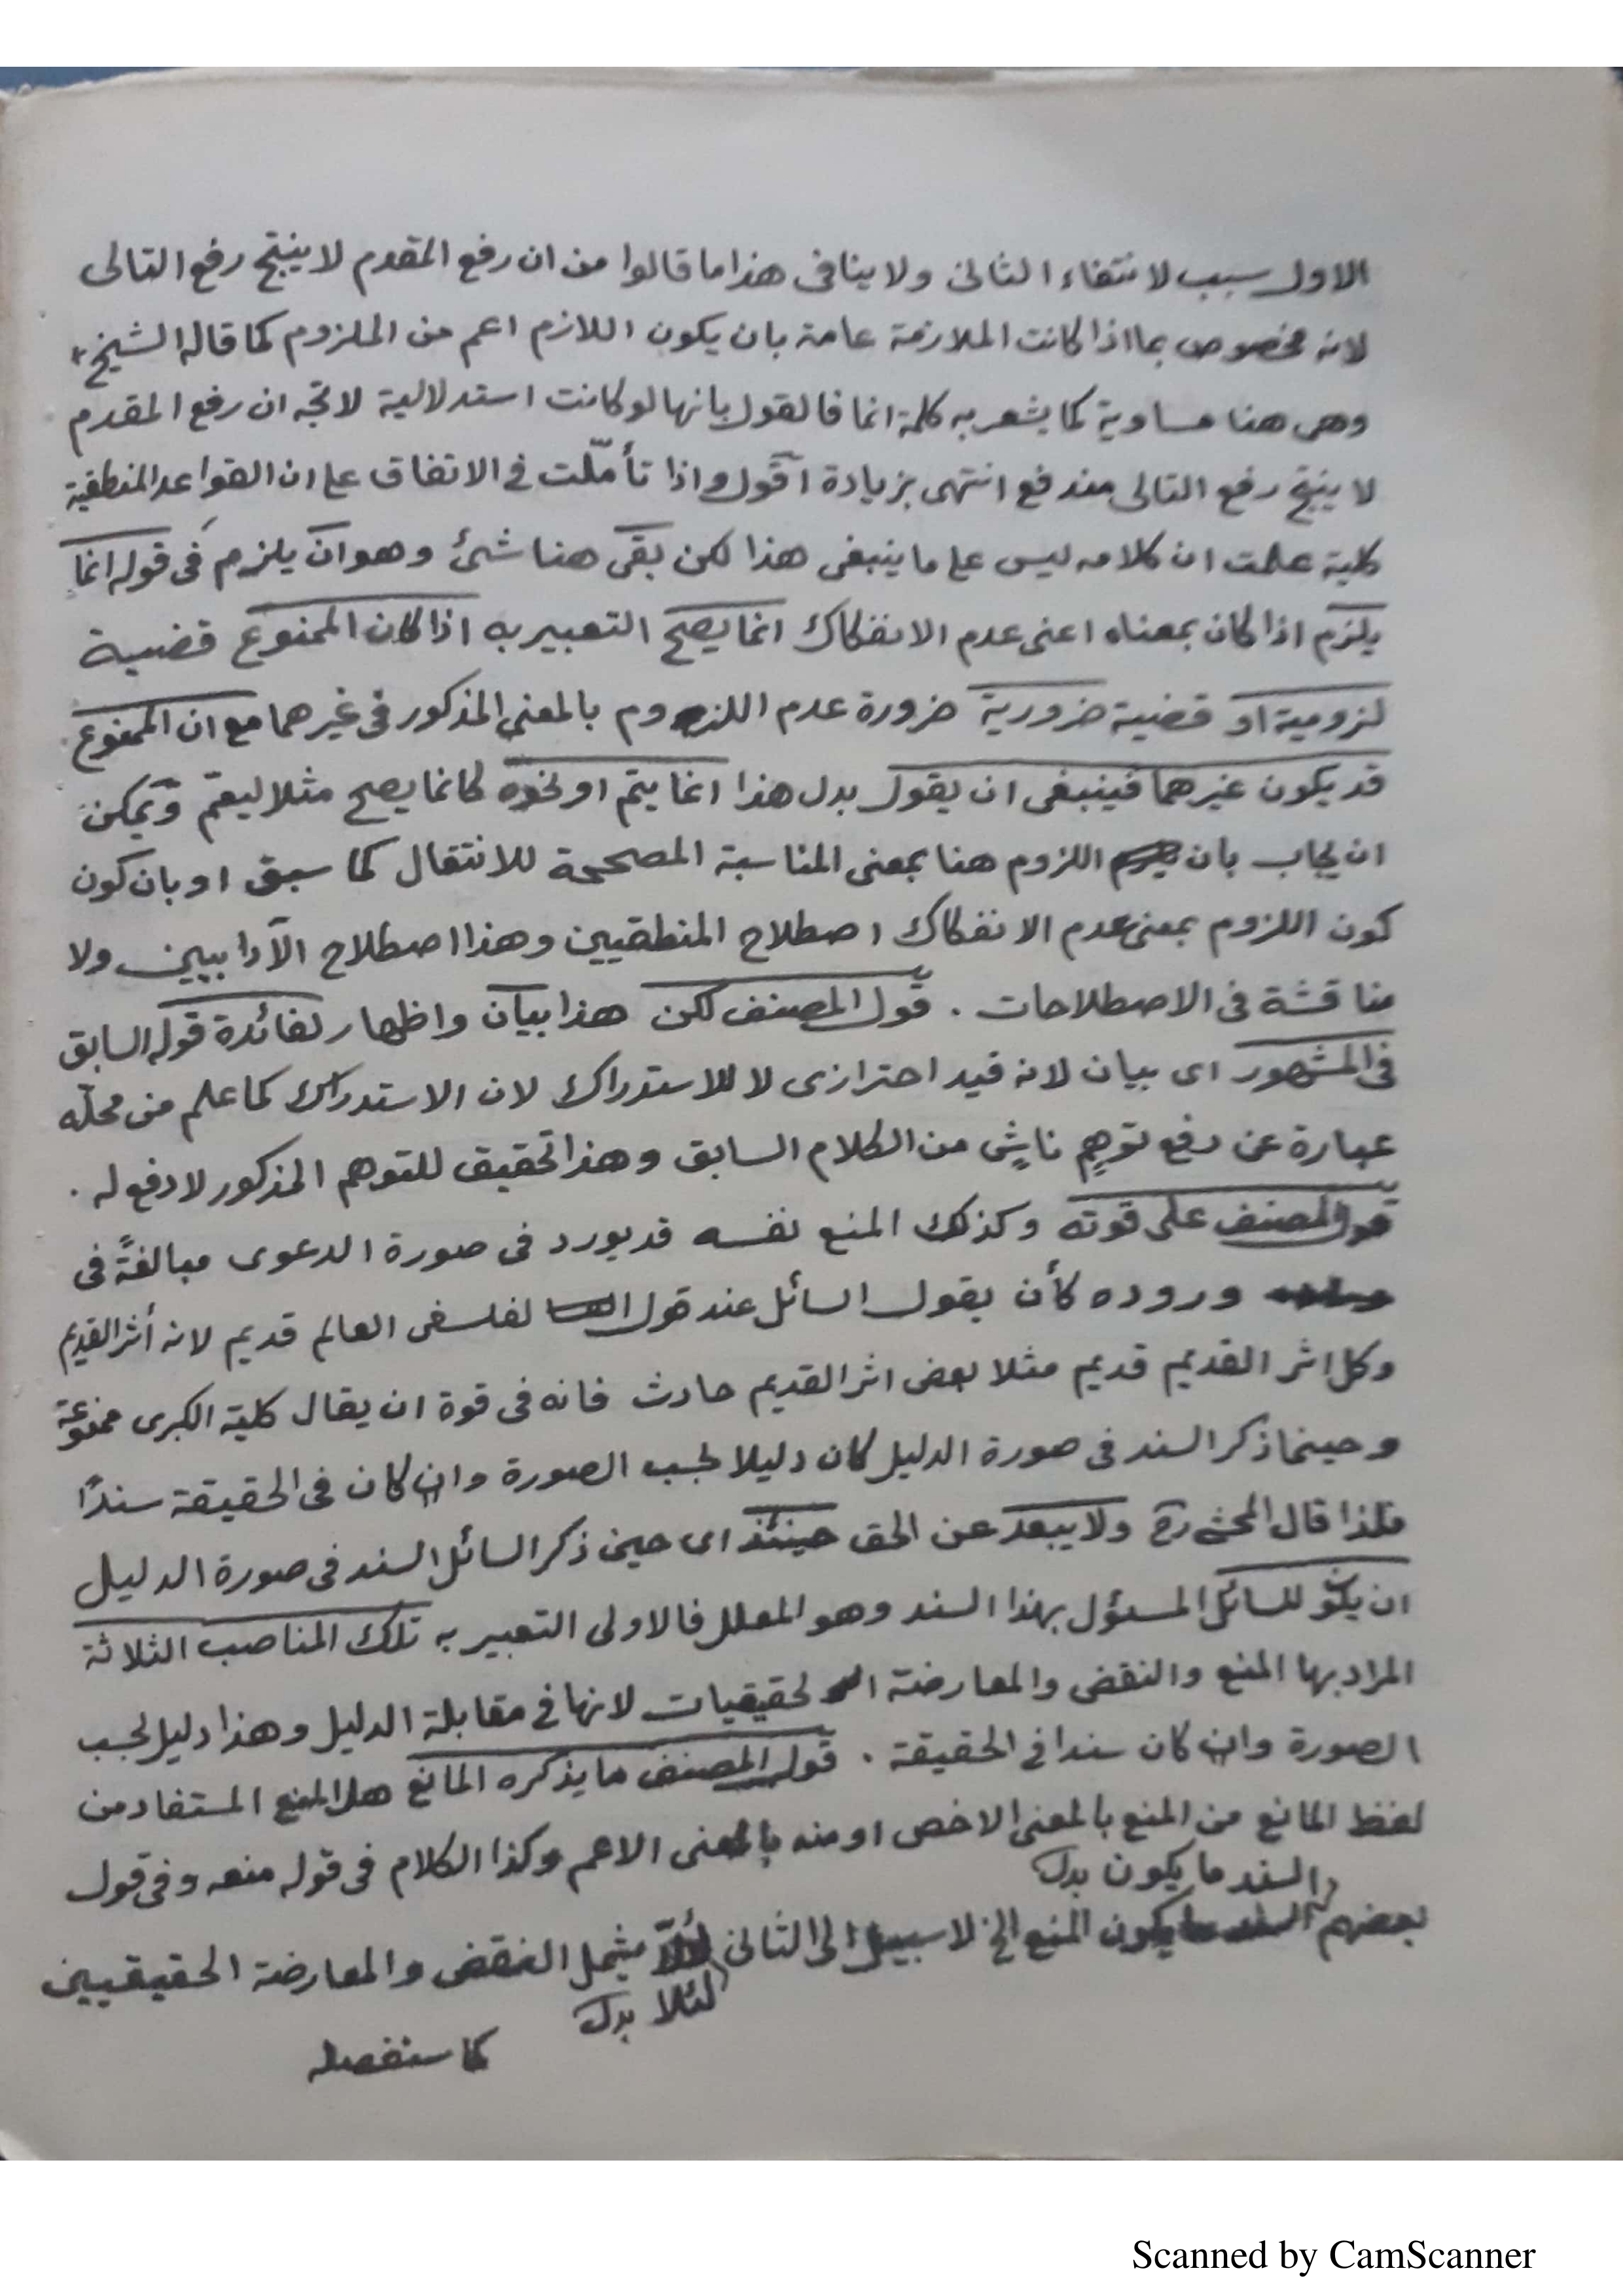 الاول سبب لانتفاء الثانى ولا ينافى هذا ما قالوا من ان رفع المقدم لا ينتج رفع التالى
لانه مخصوص بما اذا كانت الملازمة عامة بان يكون اللازم اعم من الملزوم كما قاله الشيخ
وهى هنا مساوية كما يشعر به كلمة انما فالقول بانها لو كانت استدلالية لاتجه ان رفع المقدم
لا ينتج رفع التالى مندفع انتهى بزيادة اقول واذا تأمّلت فى الاتفاق على ان القواعد المنطقية
كلية علمت ان كلامه ليس على ما ينبغى هذا لكن بقى هنا شئ وهو ان يلزم فى قوله انما
يلزم اذا كان بمعناه اعنى عدم الانفكاك انما يصح التعبير به اذا كان الممنوع قضية
لزومية او قضية ضرورية ضرورة عدم اللزوم بالمعنى المذكور فى غيرهما مع ان الممنوع
قد يكون غيرهما فينبغى ان يقول بدل هذا انما يتم او نحوه كانما يصح مثلا ليعم ويمكن
ان يجاب بان اللزوم هنا بمعنى المناسبة المصححة للانتقال كما سبق او بان كون
كون اللزوم بمعنى عدم الانفكاك اصطلاح المنطقيين وهذا اصطلاح الآدابيين ولا
مناقشة فى الاصطلاحات . قول المصنف لكن هذا بيان واظهار لفائدة قوله السابق
فى المشهور اى بيان لانه قيد احترازى لا للاستدراك لان الاستدراك كما علم من محلّه
عبارة عن دفع توهمٍ ناشٍ من الكلام السابق وهذا تحقيق للتوهم المذكور لا دفع له .
قول المصنف على قوته وكذلك المنع نفسه قد يورد فى صورة الدعوى مبالغةً فى
وروده كأن يقول السائل عند قول الفلسفى العالم قديم لانه أثر القديم
وكل اثر القديم قديم مثلا بعض اثر القديم حادث فانه فى قوة ان يقال كلية الكبرى ممنوعة
وحينما ذكر السند فى صورة الدليل كان دليلا بحسب الصورة وان كان فى الحقيقة سندًا
فلذا قال المحشى رح ولا يبعد عن الحق حينئذ اى حين ذكر السائل السند فى صورة الدليل
ان يكون للسائل المسئول بهذا السند وهو المعلل فالاولى التعبير به تلك المناصب الثلاثة
المراد بها المنع والنقض والمعارضة الحقيقيات لانها فى مقابلة الدليل وهذا دليل بحسب
الصورة وان كان سندا فى الحقيقة . قول المصنف ما يذكره المانع هل المنع المستفاد من
لفظ المانع من المنع بالمعنى الاخص او منه بالمعنى الاعم وكذا الكلام فى قوله منعه وفى قول
السند ما يكون بدل
بعضهم يكون المنع الخ لا سبيل الى الثانى يشمل النقض والمعارضة الحقيقيين
لئلا بدل
كما سنفصله
Scanned by CamScanner